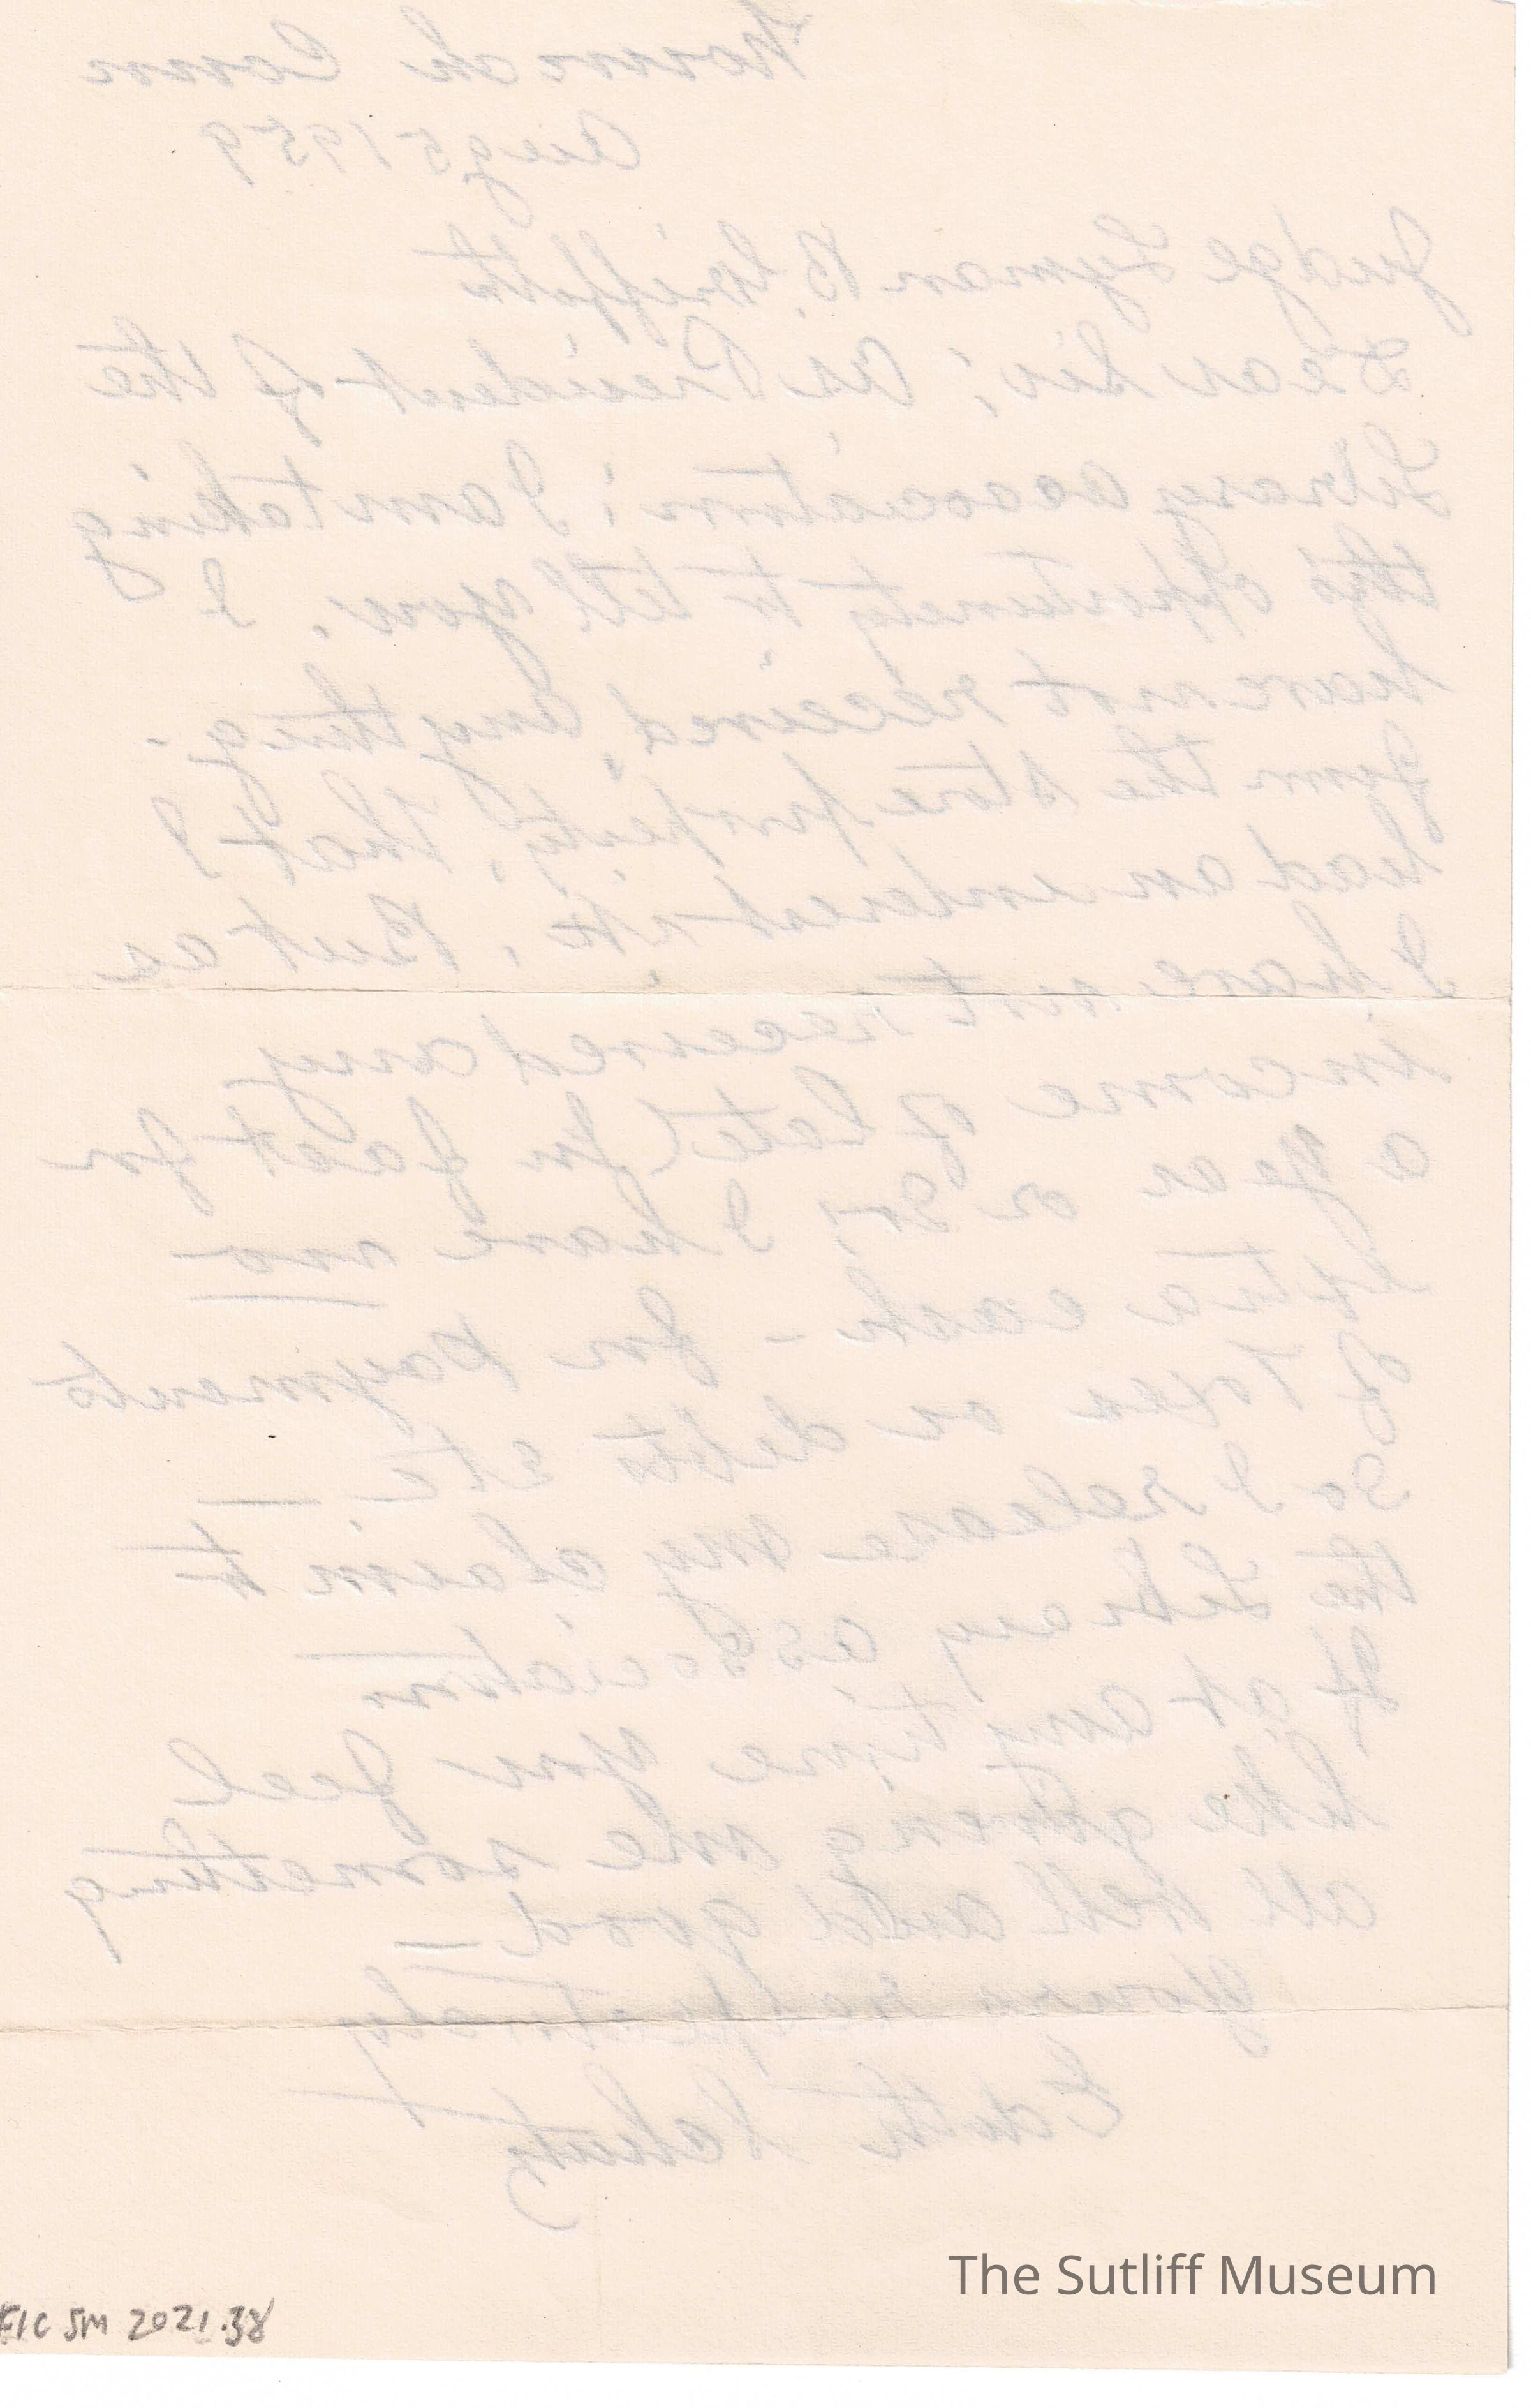 Norwich Conn
Aug 5 1959
Judge Lyman B. Griffith
Dear Sir; As President of the
Library association; I am taking
this oppertunety to tell you, I
have not received, any thing.-
from the store property, that I
had an interest in it, But as
I have not received any
income of late (in fact for
a year or so) I have no
extra cash - for payments
of Taxes or debts etc. —
So I release my claim to
the Library association
If at any time you feel
like giving me something
all well and good —
Yours respectively
Edith
The Sutliff Museum
SM 2021.38